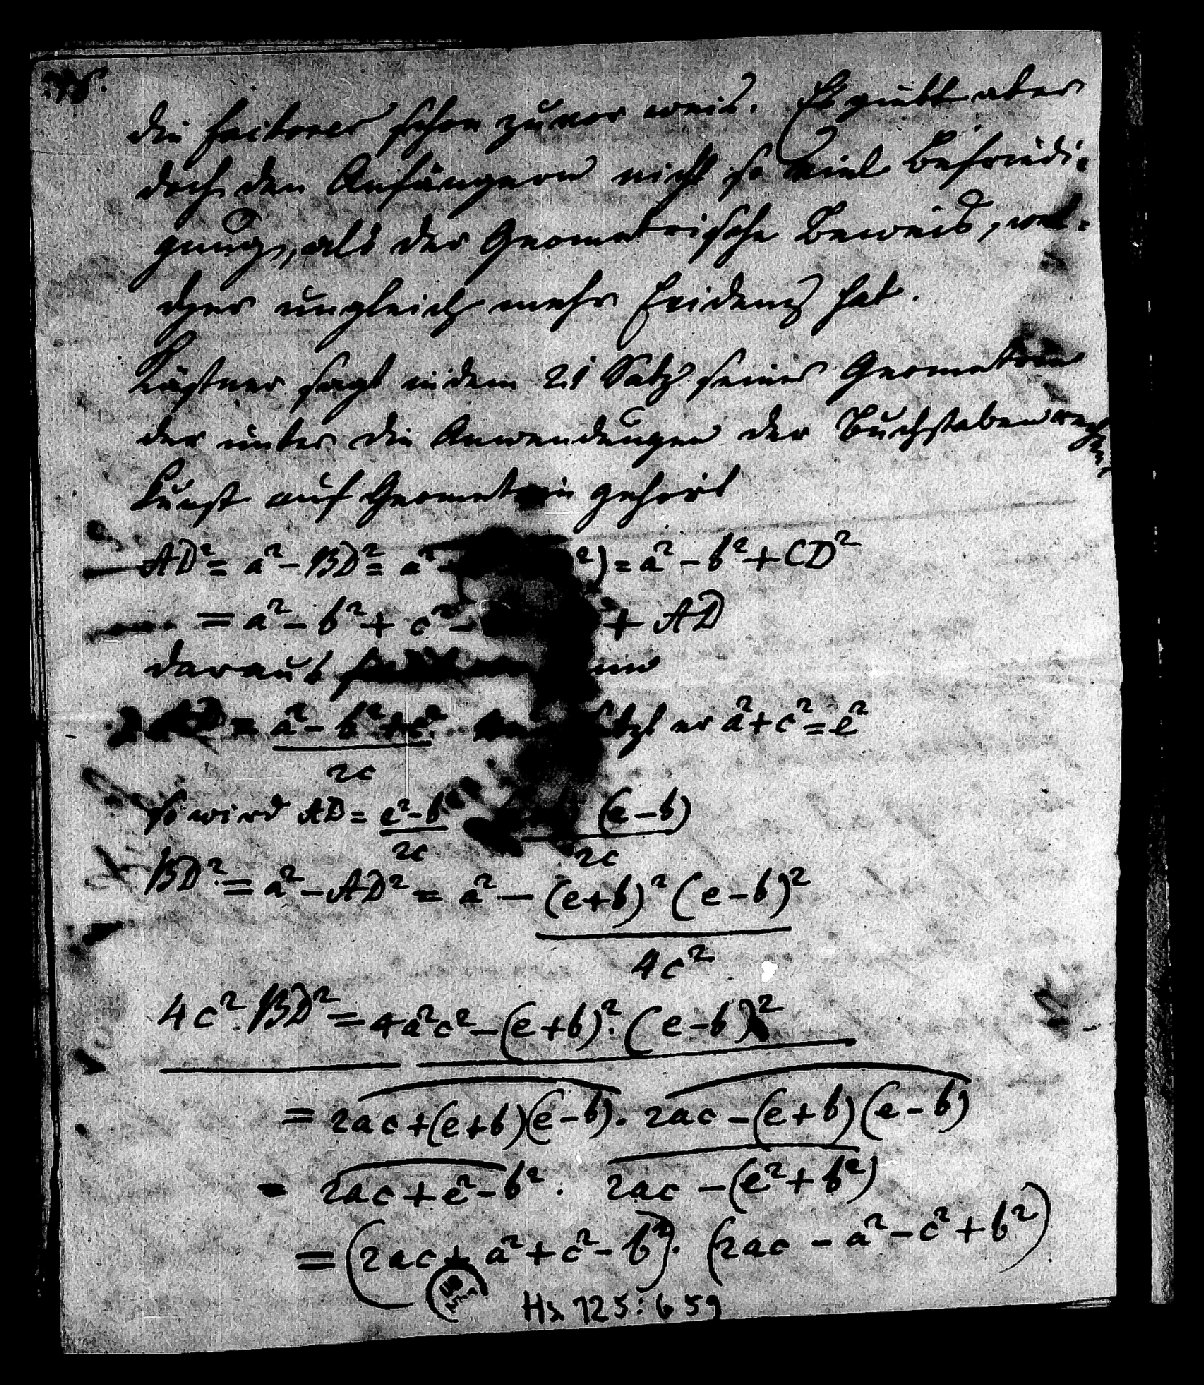 die factores schon zuvor weis. Es giebt aber
doch den Anfängern nicht so viel Befriedi-
gung, als der Geometrische Beweis, wel-
cher ungleich mehr Evidenz hat.
Kästner sagt in dem 21 Satz seiner Geometrie
der unter die Anwendungen der Buchstabenrech
Kunst auf Geometrie gehört
AD² = a² - BD² = a² ²) = a² - b² + CD²
= a² - b² + c² - + AD
daraus
= a² - b² + c² er a² + c² = e²
2c
so wird AD = e² - b (e - b)
2c 2c
BD² = a² - AD² = a² - (e+b)² (e-b)²
4c²
4c². BD² = 4a²c² - (e+b)². (e-b)²
= 2ac + (e+b)(e-b). 2ac - (e+b)(e-b)
= 2ac + e² - b². 2ac - (e² + b²)
= (2ac + a² + c² - b²). (2ac - a² - c² + b²)
Hs 125: 659